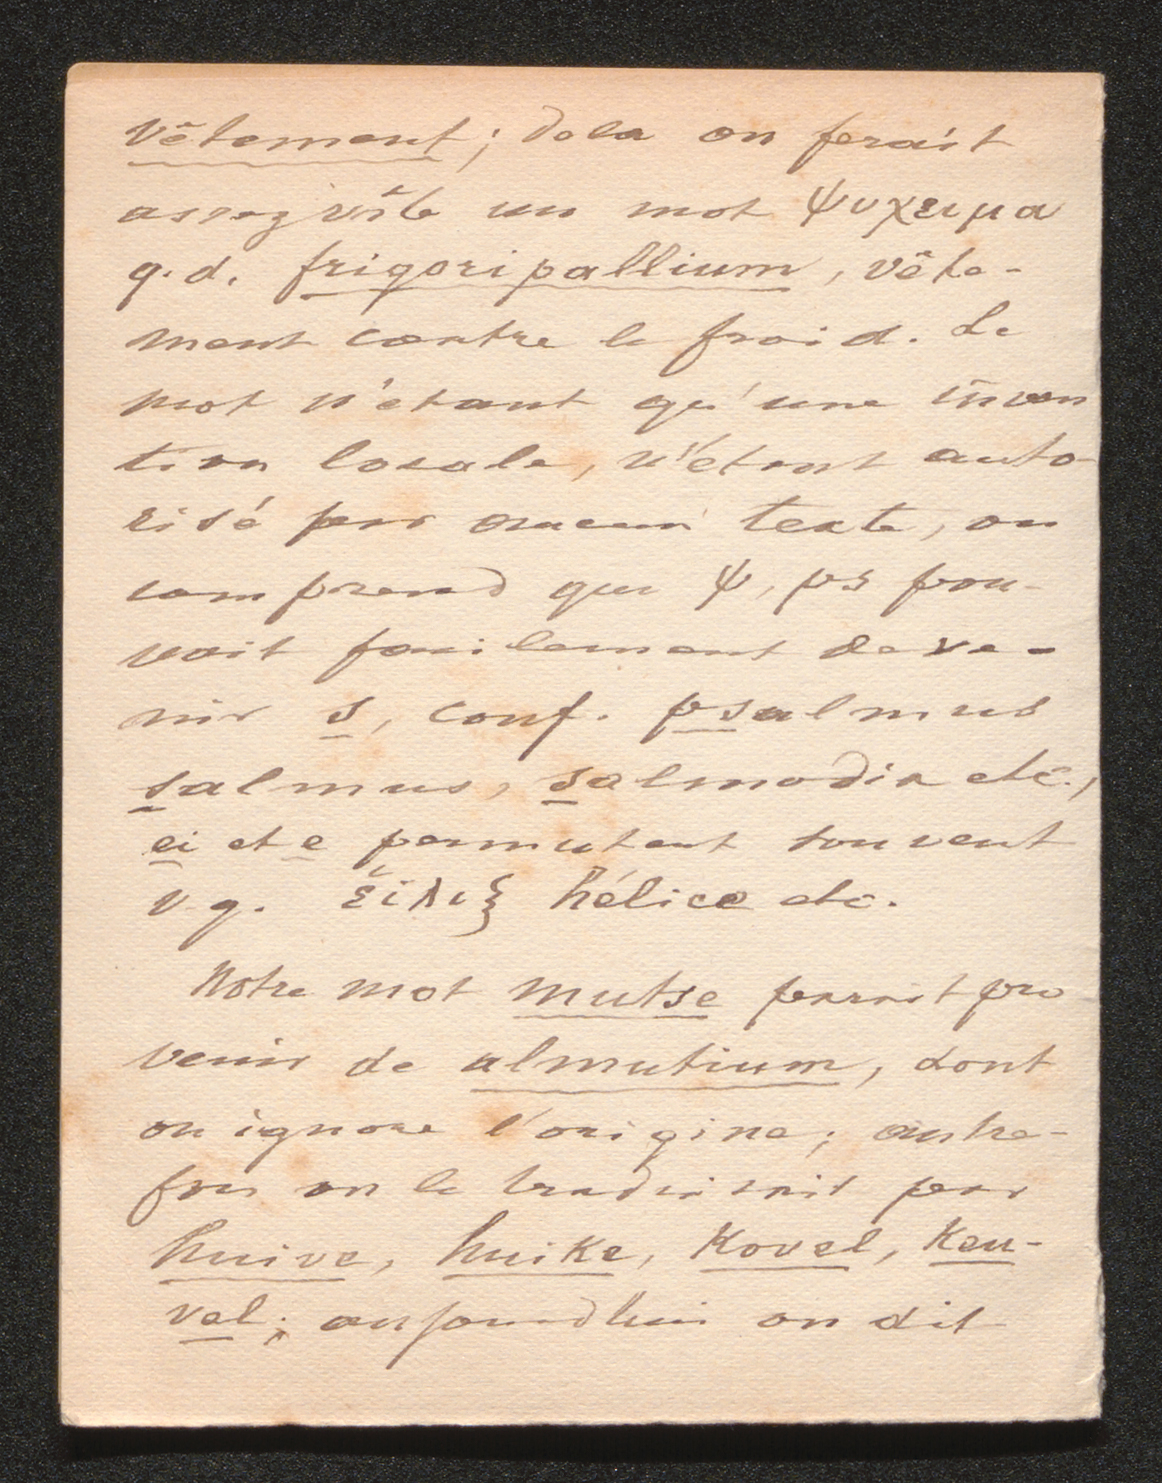 vêtement; de là on ferait
assez vîte un mot ψυχειμα
q.d. frigoripallium, vête-
ment contre le froid. Le
mot n'etant qu'une inven
tion locale, n'étant auto-
risé par aucun texte, on
comprend que ψ, ps pou-
vait facilement deve-
nir s, conf. psalmus
salmus, salmodia etc.,
ei et e permutent souvent
v.g. ἕιλιξ hélice etc.
Notre mot mutse parait pro
venir de almutium, dont
on ignore l'origine; autre-
fois on le traduisait par
huive, huike, Kovel, Keu-
vel; aujourdhui on dit